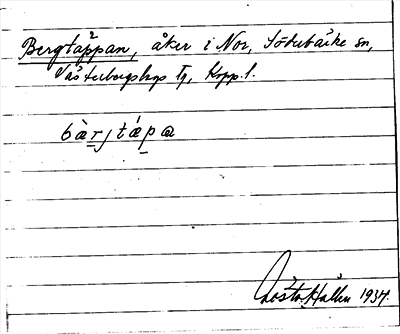 Bergtäppan, åker i Nor, Söderbärke sn,
Västerbergslags tg, Kopp. l.
bàrjtápa
Gösta Hallin 1934.